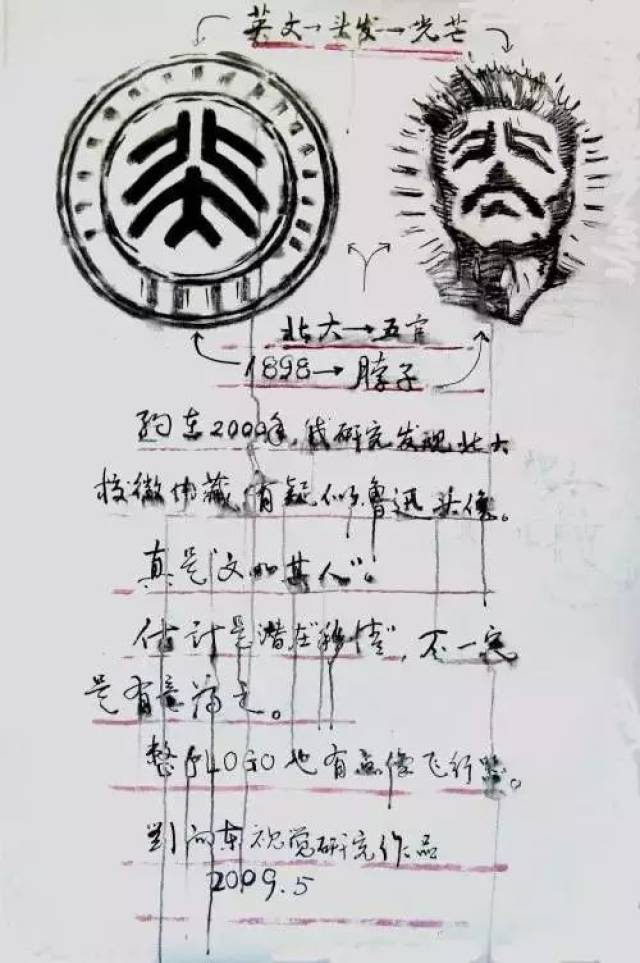 英文→头发→光芒
北大→五官
1898→脖子
约在2000年,我研究发现北大
校徽内藏有疑似鲁迅头像。
真是"文如其人"。
估计是潜在"移情",不一定
是有意为之。
整个LOGO也有点像飞行器。
刘向东视觉研究作品
2009.5